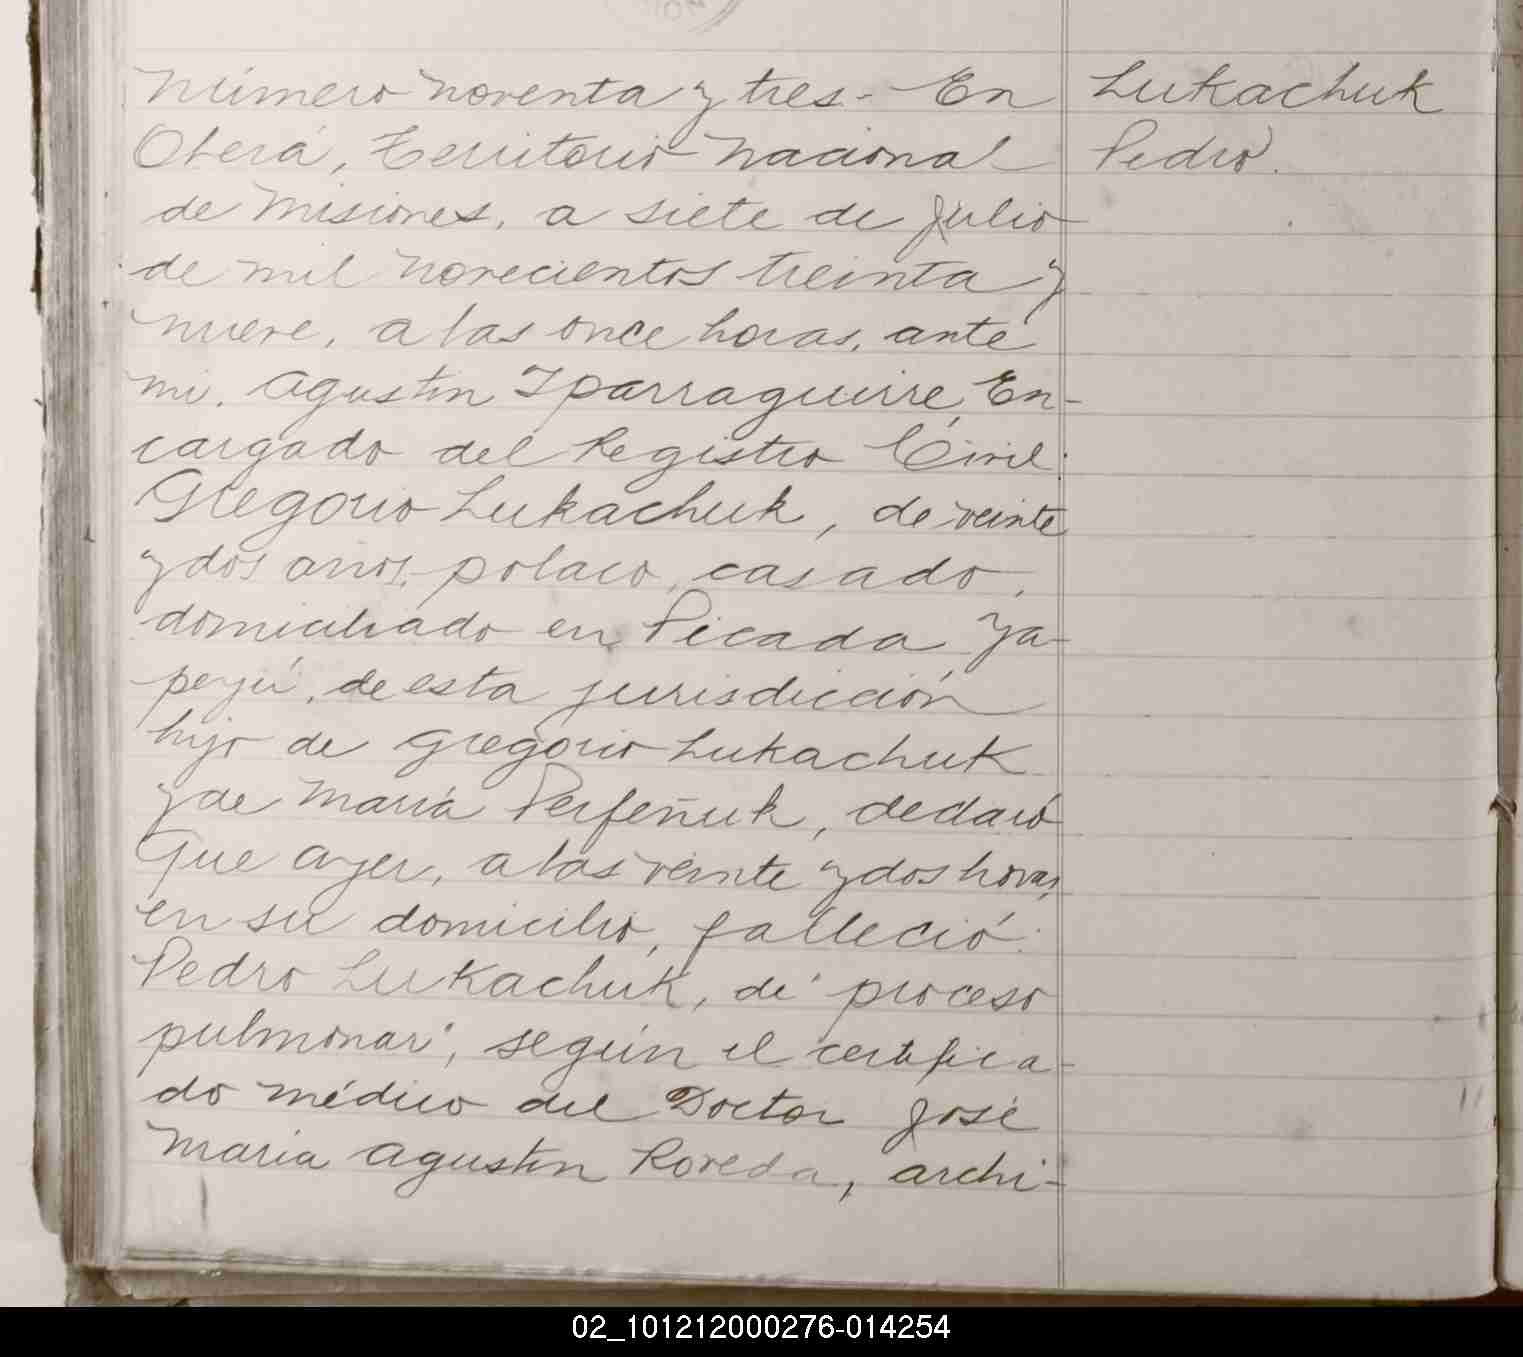 Número noventa y tres - En
Oberá, Territorio Nacional
de Misiones, a siete de Julio
de mil novecientos treinta y
nueve, a las once horas, ante
mi, Agustin Iparraguirre, En-
cargado del Registro Civil:
Gregorio Lukachuk, de veinte
y dos anos, polaco, casado,
domiciliado en Picada Ya-
peyú, de esta jurisdicción
hijo de Gregorio Lukachuk
y de María Perfeñuk, declaró
Que ayer, a las veinte y dos horas,
en su domicilio, falleció:
Pedro Lukachuk, de "proceso
pulmonar", según el certifica-
do médico del Doctor José
María Agustin Roveda, archi-
Lukachuk
Pedro.
02_101212000276-014254